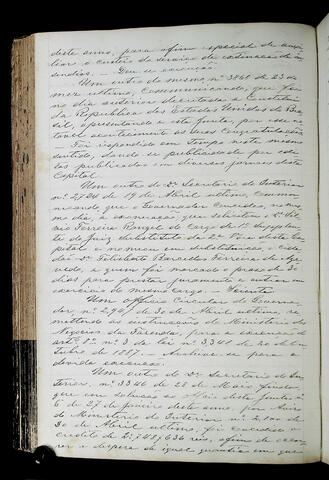 deste anno, para o fim especial de auxi-
liar o custeio do serviço de extincção de in-
cendios. — Deu-se execução.
Um outro do mesmo, nº 3868 de 23 do
mez ultimo, communicando, que foi
no dia anterior decretada a Constituição
da Republica dos Estados Unidos do Bra-
sil, apresentando a esta Junta, por esse no-
tavel acontecimento as suas congratulações
— Foi respondido em tempo neste mesmo
sentido, dando-se publicidade por edi-
taes publicados em diversos jornaes desta
Capital.
Um outro do Dr. Secretario do Interior
nº 2724 de 19 de Abril ultimo, commu-
nicando que o Governador concedeu, no mes-
mo dia, a exoneração que solicitou o Dr.
Ferreira Rangel do cargo de 1º Supplen-
te do Juiz Substituto da desta Ca-
pital e nomeou em substituição, o cida-
dão Dr. Felisberto Barcellos Ferreira de Aze-
vedo, a quem foi marcado o praso de 30
dias para prestar juramento e entrar em
exercicio do mesmo cargo. — Sciente
Um officio Circular do Governa-
dor, nº 2,941 de 30 de Abril ultimo, re-
mettendo as instrucções do Ministerio dos
Negocios da Fazenda, para a execução do
artº 1º nº 3 da lei nº 3348 de 20 de Ou-
tubro de 1887. — Archive-se para a
devida execução.
Um outro do Dr. Secretario do In-
terior, nº 3346 de 28 de Maio findo,
que em solução ao officio desta Junta nº
6 de 27 de Janeiro deste anno, por Aviso
do Ministerio do Interior nº de
30 de Abril ultimo, foi concedido o
credito de 2:748$636 reis, afim de occor-
rer a despeza de igual quantia em que